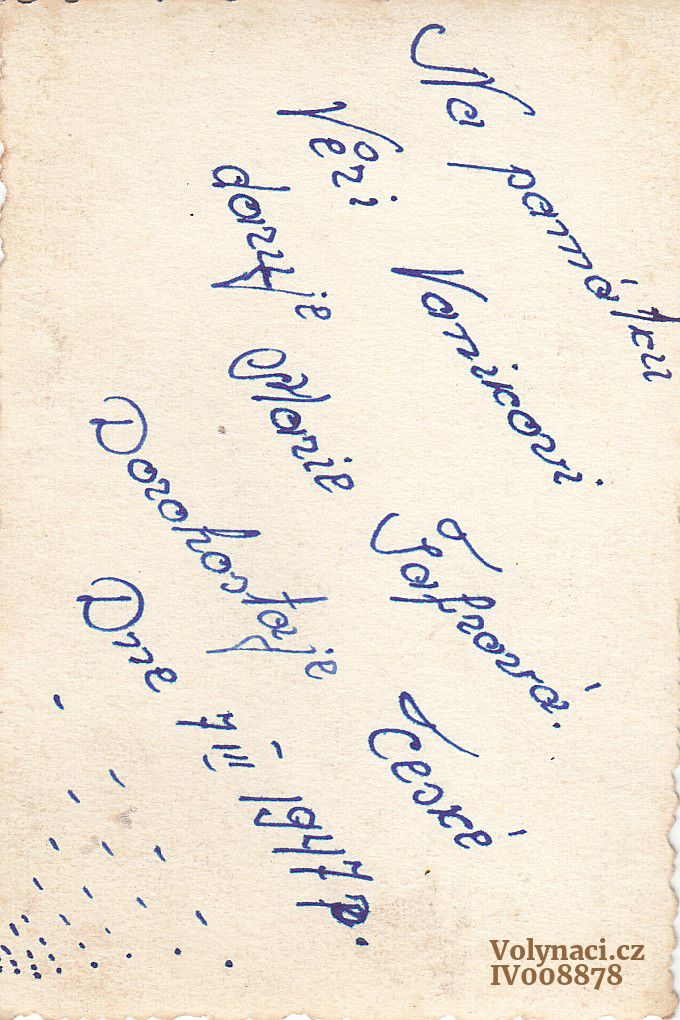 Na památku
Věři Vanikovi
daruje Marie Tofrová.
České
Dorohostaje
Dne 7 III 1947 р.
Volynaci.cz
IV008878